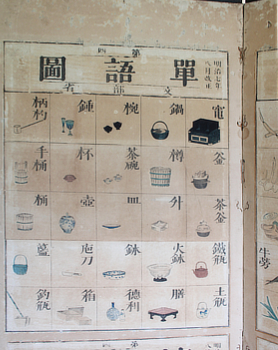 第四
單語圖
明治七年
八月改正
文部省
竈
鍋
椀
鍾
柄杓
釜
樽
茶碗
杯
手桶
茶釜
皿
壺
桶
鐵瓶
火鉢
鉢
庖刀
籃
土瓶
膳
德利
箱
釣瓶
牛蒡